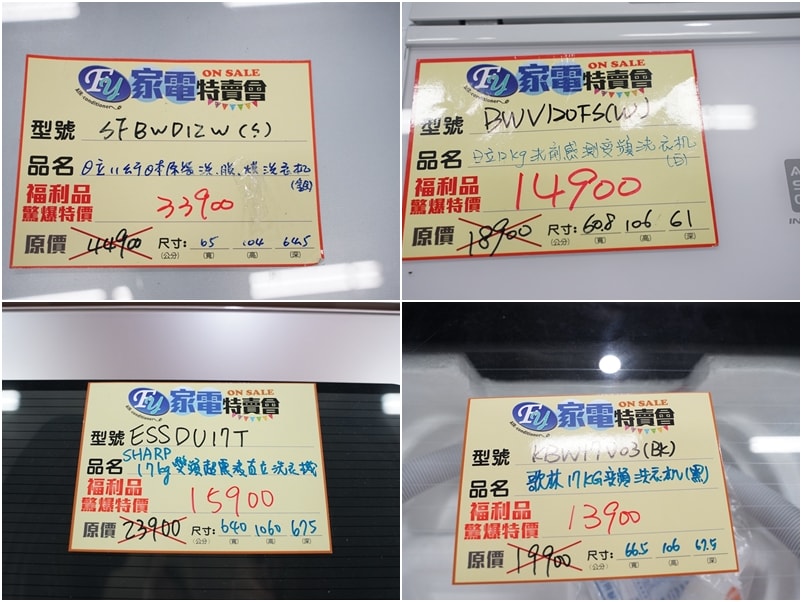 FU 家電特賣會 ON SALE
Air-conditioner
型號 SFBWD12W(S)
品名 日立11公斤日本原裝洗、脫、烘洗衣機
(銀)
福利品
驚爆特價 33900
原價 44900 尺寸: 65 104 64.5
(公分) (寬) (高) (深)
FU 家電特賣會 ON SALE
Air-conditioner
型號 BWV120FS(W)
品名 日立12kg洗劑感測变頻洗衣机
(白)
福利品
驚爆特價 14900
原價 18900 尺寸: 60.8 106 61
(公分) (寬) (高) (深)
FU 家電特賣會 ON SALE
Air-conditioner
型號 ESSDU17T
SHARP
品名 17kg 變頻超震波直立洗衣機
福利品
驚爆特價 15900
原價 23900 尺寸: 640 1060 675
(公分) (寬) (高) (深)
FU 家電特賣會 ON SALE
Air-conditioner
型號 KBW17V03(BK)
品名 歌林17KG变頻洗衣机(黑)
福利品
驚爆特價 13900
原價 19900 尺寸: 66.5 106 67.5
(公分) (寬) (高) (深)